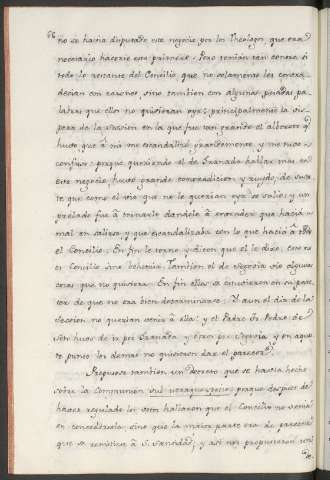 66
ño se havia disputado este negocio por los Theologos, que era
necesario hacerse esto primero. Pero tenian tan contra si
todo lo restante del Concilio, que no solamente los contra-
decian con razones sino tambien con algunas pesadas pa-
labras que ellos no quisieran oyr; principalmente la vis-
pera de la Session en la que fue tan grande el alboroto q.
huvo que à mi me escandalizó grandemente, y me tuvo
confuso: porque queriendo el de Granada hablar mas en
este negocio, huvo grande contradicion y ruydo, de suer-
te que como el vio que no le querian oyr se salio; y un
prelado fue à tomarle dandole à entender que hacia
mal en salirse, y que escandalizaba con lo que hacia à todo
el Concilio. En fin le torno, y dicen que el le dixo, esto no
es Concilio sino behetria. Tambien el de Segovia oyó algunas
cosas que no quisiera. En fin ellos se estuvieron en su pare-
cer de que no era bien determinarse. Y aun el dia de la
Session no querian venir à ella: y el Padre Fr. Pedro de
Soto huvo de ir por Granada y otro por Segovia, y en aques-
te punto los demas no quisieron dar el parecer.
Propusose tambien un Decreto que se havia hecho
sobre la Communion sub utraque specie, porque despues de
haver regulado los votos hallaron que el Concilio no venia
en concederlo sino que la mayor parte era de parecer
que se remitiese à S. Santidad; y asi nos propusieron un